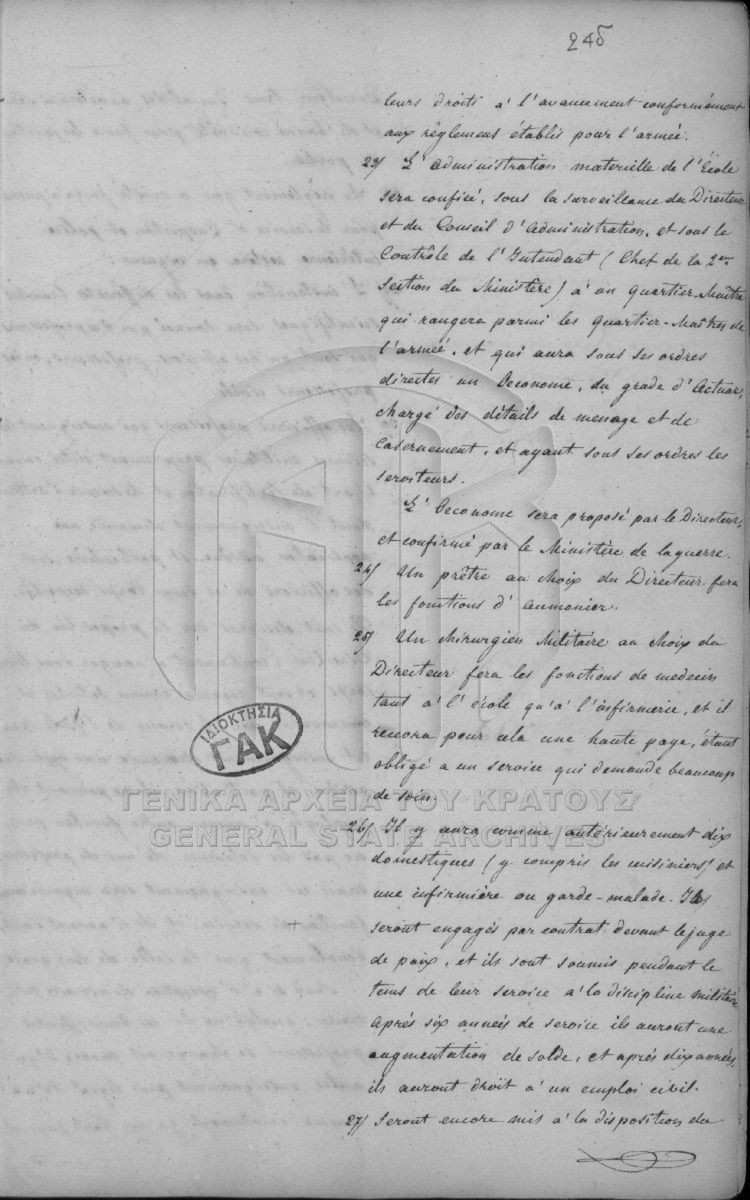 245
leurs droits à l'avancement conformément
aux réglemens établis pour l'armée.
23/ L'administration materielle de l'École
sera confieé, sous la surveillance du Directeur
et du Conseil d'administration, et sous le
Contrôle de l'Intendant (Chef de la 2me
Section du Ministêre) à un quartier-Maître
qui rangera parmi les quartier-Maîtres de
l'armeé, et qui aura sous ses ordres
directes un Oeconome, du grade d'Actuar,
chargé des détails de menage et de
Casernement, et ayant sous ses ordres les
serviteurs.
L'Oeconome sera proposé par le Directeur,
et confirmé par le Ministêre de la guerre.
24/ Un prêtre au choix du Directeur fera
les fonctions d'aumonier.
25/ Un chirurgien Militaire au choix du
Directeur fera les fonctions de medecin
tant à l'école qu'à l'infirmerie, et il
recevra pour cela une haute paye, étant
obligé a un service qui demande beaucoup
de soin.
26/ Il y aura comme antérieurement dix
domestiques (y compris les cuisiniers) et
une infirmière ou garde-malade. Ils
seront engagés par contrat devant le juge
de paix, et ils sont soumis pendant le
tems de leur service à la discipline militaire
Après six anneés de service ils auront une
augmentation de solde, et aprés dix années,
ils auront droit à un emploi civil.
27/ Seront encore mis à la disposition du
ΙΔΙΟΚΤΗΣΙΑ
ΓΑΚ
ΓΕΝΙΚΑ ΑΡΧΕΙΑ ΤΟΥ ΚΡΑΤΟΥΣ
GENERAL STATE ARCHIVES